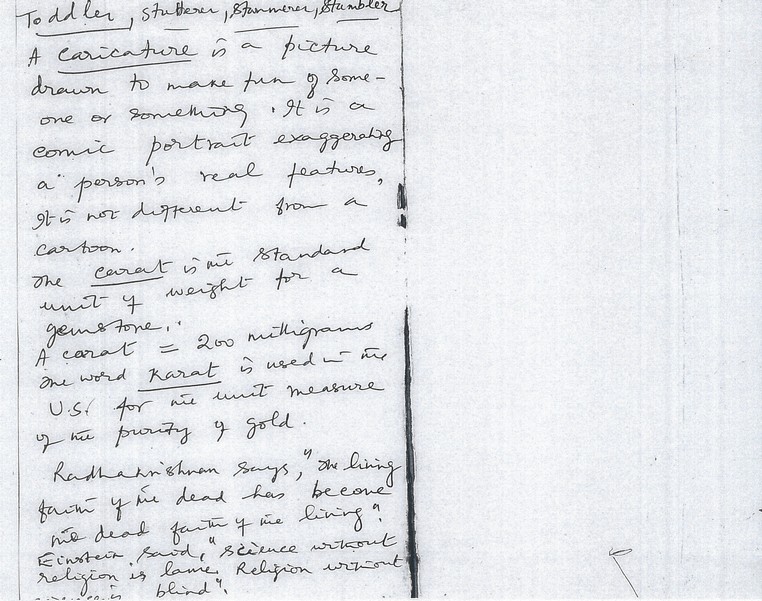 Toddler, stutterer, stammerer, stumbler
A caricature is a picture
drawn to make fun of some-
one or something. It is a
comic portrait exaggerating
a person's real features,
It is not different from a
cartoon.
The carat is the standard
unit of weight for a
gemstone.
A carat = 200 milligrams
The word Karat is used in the
U.S. for the unit measure
of the purity of gold.
Radhakrishnan says, "The living
faith of the dead has become
the dead faith of the living".
Einstein said, "Science without
religion is lame. Religion without
science is blind".